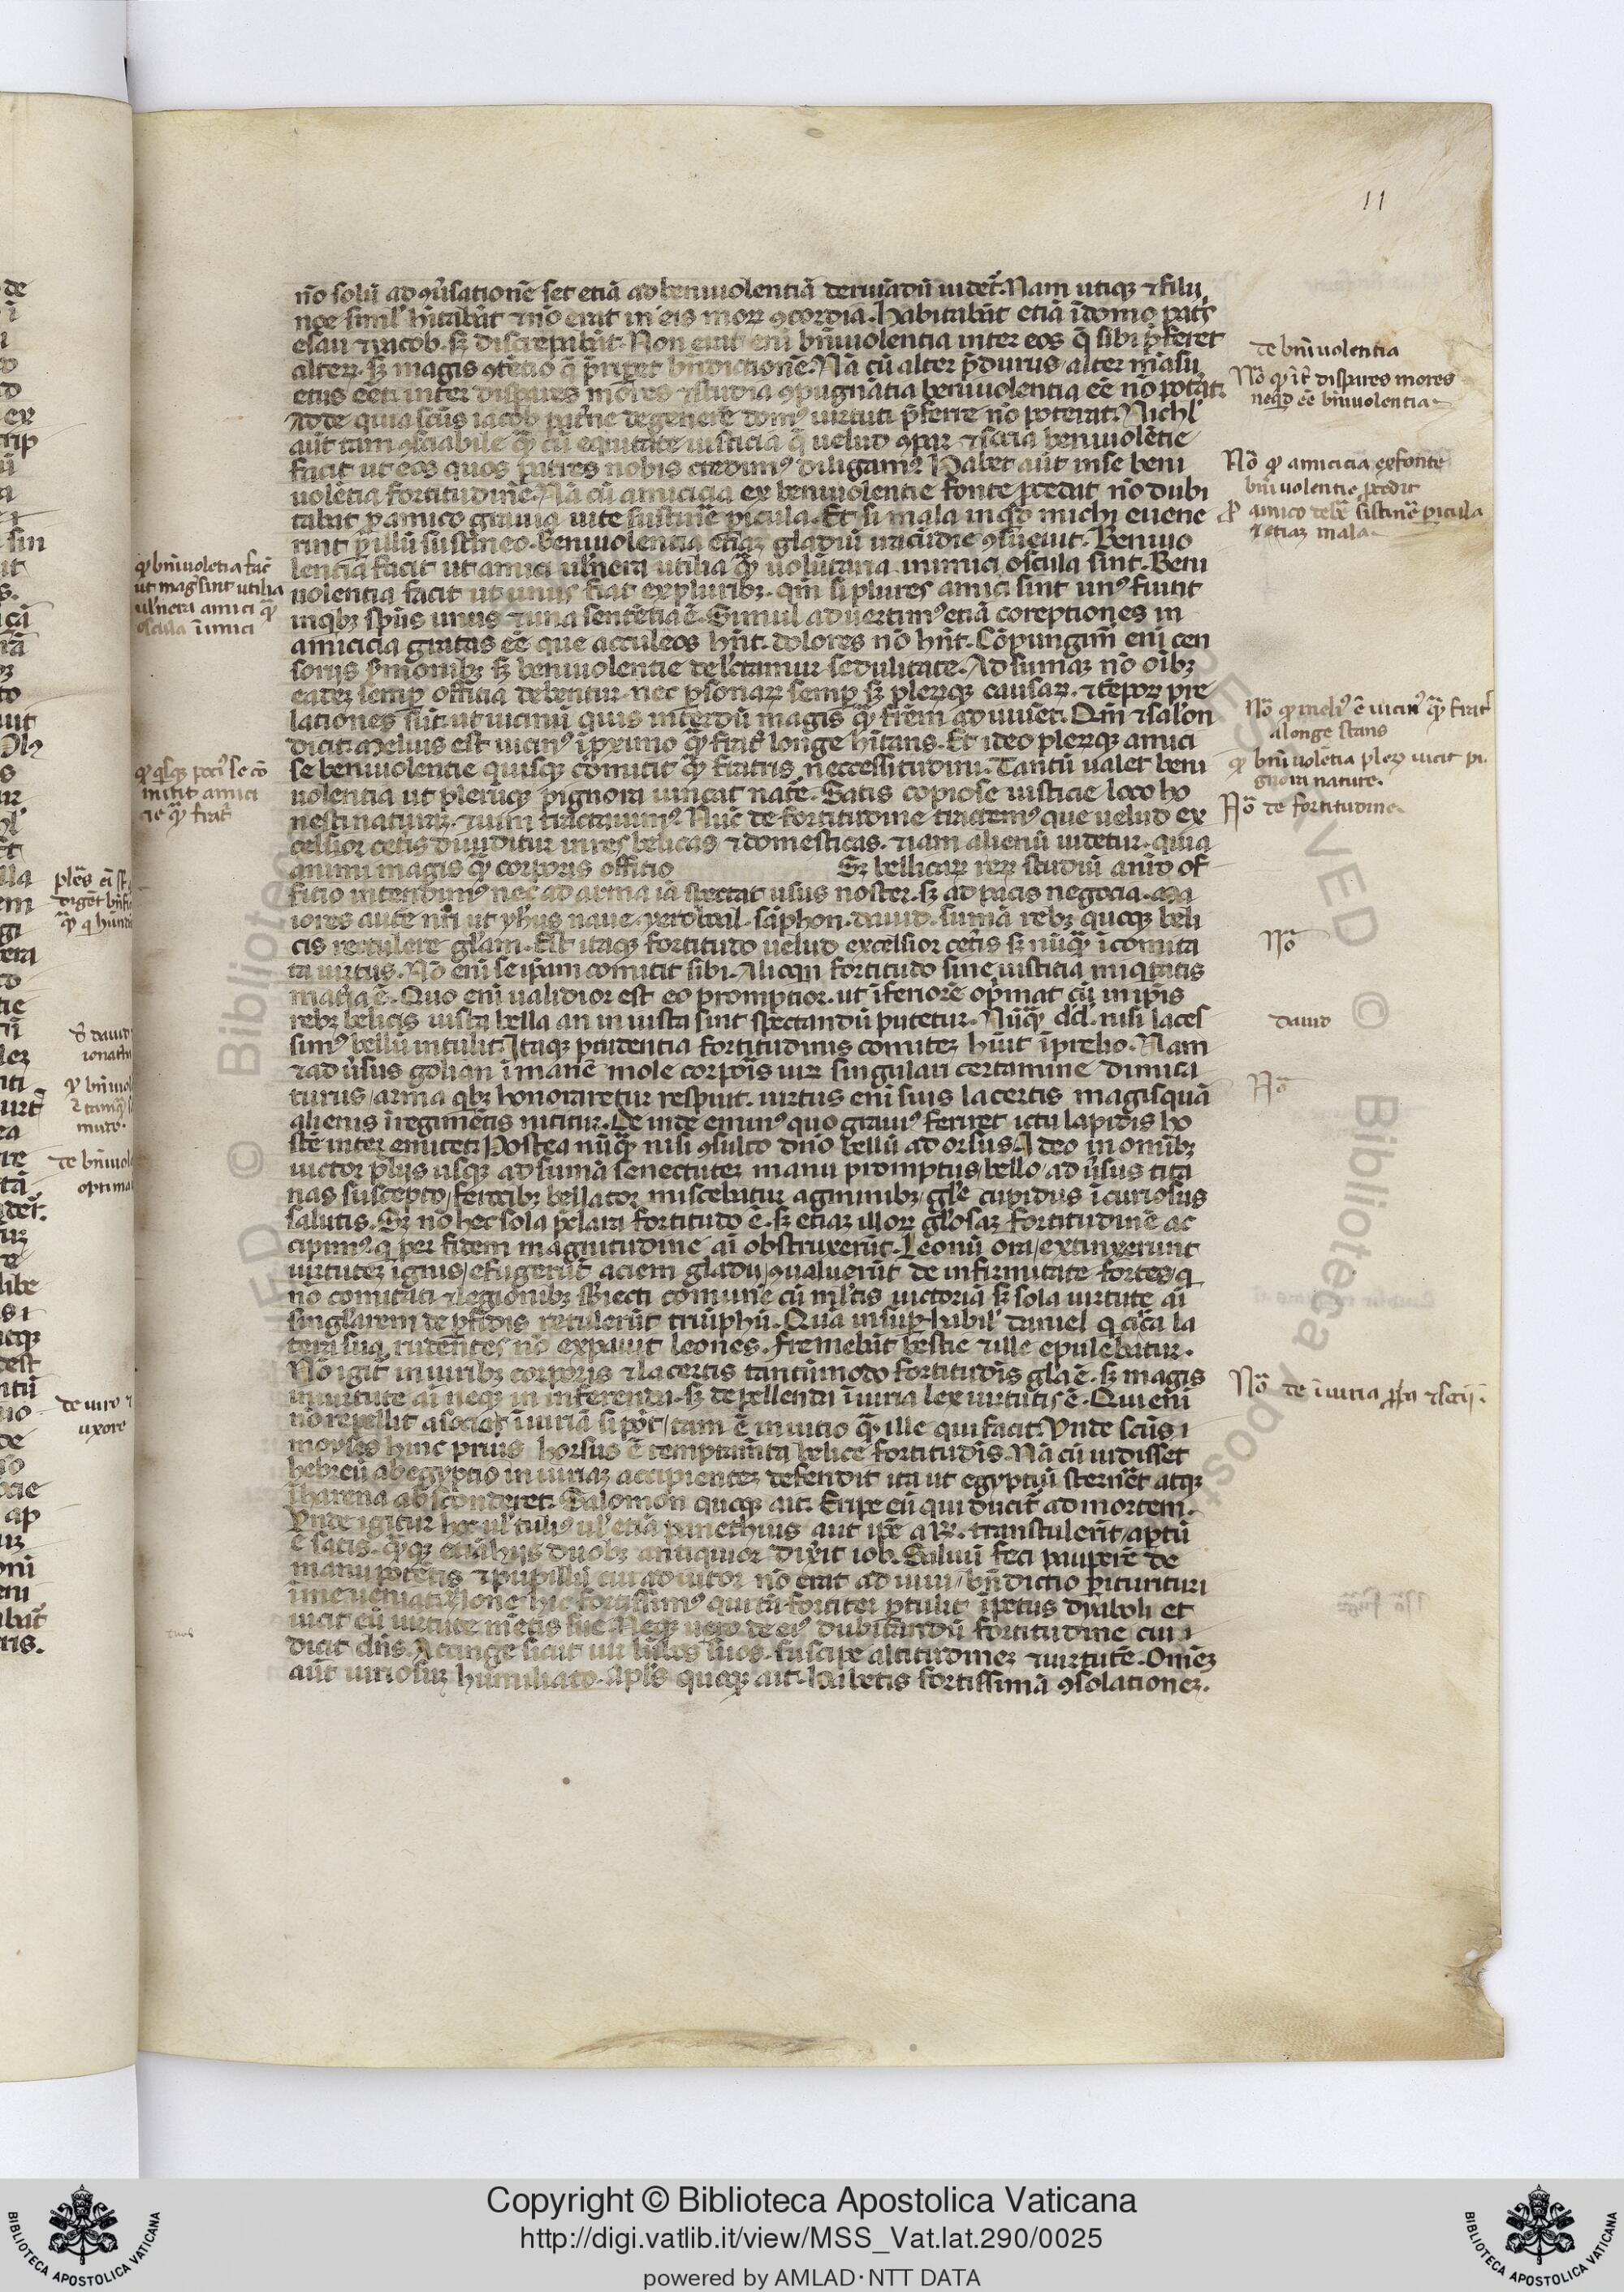 11
nō solū ad ꝯũsationē set etiā ad beniuolentiā deriuādū uidet᷑. Nam utiqꝫ ⁊ filii
noe simul hītabāt ⁊ nō erat in eis morꝝ ꝯcordia. habitabāt etiā ī domo patˢ
esau ⁊ iacob. sꝫ discrepabāt. Non erat enī bn̄iuolentia inter eos q̄ sibi p̄ferret
alterꝝ. sꝫ magis ꝯtētio q̄ p̄riperet bn̄dictionē. Nā cū alter p̄durus alter māsu
etus eēt inter dispares mōres ⁊ studia ꝯpugnātia beniuolentia eē nō poterat.
Adde quia scūs iacob pat̄ne degenerē domꝰ uirtuti p̄ferre nō poterat. Nichl'
aūt tam ꝯsciabile qᷓ cū equitate iusticia q̄ uelud ꝯpar ⁊ socia beniuolētie
facit ut eos quos patres nobis credimꝰ diligamꝰ. Habet aūt in se beni
uolētia fortitudinē. Nā cū amicicia ex beniuolentie fonte ꝓcedat nō dubi
tabat ꝓ amico grauia uite sustinē ꝑicula. Et si mala inqͥd michi euene
rint ꝑ illū sustineo. Beniuolentia etiāꝫ gladiū iracūdie ꝯsueuit. Beniuo
lentia facit ut amici uln̄era utilia qᷓ uolūtaria inimici oscula sint. Beni
uolentia facit ut unus fiat ex pluribꝫ. qm̄ si plures amici sint unꝰ fiunt
inqͥbꝫ spūs unus ⁊ una sentētia ē. Simul aduertimꝰ etiā coreptiones in
amicicia gratas eē que acculeos hn̄t. dolores nō hn̄t. Cōpungim̄ enī cen
soriis ẜmonibꝫ sꝫ beniuolentie delectamur sedulitate. Ad sumāꝫ nō oībꝫ
eadeꝫ semꝑ officia debentur. nec ꝑsonarꝝ semꝑ sꝫ plerꝝqꝫ causarꝝ. ⁊ tēporꝝ pre
lationes sūt. ut uicinū quis interdū magis qᷓ frēm adiuuet. Qm̄ ⁊ salo'on
dicit. Melius est uicinꝰ ī ꝓximo qᷓ frat̄ longe hītans. Et ideo plerꝝqꝫ amici
se beniuolentie quisqꝫ cōmitit qᷓ fratris neccessitudini. Tantū ualet beni
uolentia ut plerūqꝫ pignora uincat natē. Satis copiose iusticie loco ho
nesti naturāꝫ ⁊ uim tractauimꝰ. Nūc de fortitudine tractemꝰ que uelud ex
celsior cetis diuiditur in res belicas ⁊ domesticas. ⁊ iam alienū uidetur. quia
animi magis qᷓ corporis officio Sꝫ bellicarꝝ rerꝝ studiū an̄īo of
ficio intendimꝰ nec ad arma iā spectat usus noster. sꝫ ad pacis negocia. Ma
iores autē nr̄i ut yh̄us naue. yeroboal. sāphon. dauid. sumā rebꝫ quoqꝫ beli
cis retulere glīam. Est itaqꝫ fortitudo uelud excelsior cetīs sꝫ nūqᷓ ī comita
ta uirtus. Nō enī se ip̄am comitit sibi. Alioqn fortitudo sine iusticia iniqͥtatis
mat̄ia ē. Quo enī ualidior est eo promptior. ut īferiorē opͥmat cū in ip̄is
rebꝫ beliqͥs iusta bella an iniusta sint spectandū putetur. Nūqᷓ dd. nisi laces
simꝰ bellū intulit. Itaqꝫ prudentia fortitudinis comiteꝫ hūit ī prelio. Nam
⁊ aduˢsus golian īmanē mole corpōis uirꝝ singulari certamine dimica
turus / arma qͥbꝫ honoraretur respuit. uirtus enī suis lacertis magis quā
alienis ī tegimētis nititur. De inde eminꝰ quo grauiꝰ feriret ictu lapidis ho
stē interemit. et Postea nūqᷓ nisi ꝯsulto dn̄o bellū adorsus. Adeo in omībꝫ
uictor pl̄iis usqꝫ ad sumā senectuteꝫ manu promptus / bello / aduˢsus tita
nas suscepto / ferocibꝫ bellator miscebatur agminibꝫ / glē cupidus ī curiosus
salutis. Sꝫ nō hec sola p̄clara fortitudo ē. sꝫ etiāꝫ illorꝝ glosaꝫ fortitudinē ac
cipimꝰ. q̄ per fidem magnitudine ai obstruxerūt. Leonū ora / extinxerunt
uirtuteꝫ ignis / efugerūt aciem gladii / ꝯualuerūt de infirmitate fortes / q
nō comitati ⁊ legionibꝫ sbiecti comunē cū ml'tis uictoriā sꝫ sola uirtute ai
singlarem de ꝑfidis retulerūt triūphū. Quā insuꝑabil' daniel q circa la
tera sua rudentes nō expauit leones. fremebāt bestie ⁊ ille epulebatur.
Nō igit in uiribꝫ corporis ⁊ lacertis tantūmodo fortitudīs glā ē. sꝫ magis
in uirtute ai neqꝫ in inferenda. sꝫ depellenda īiuria lex uirtutis ē. Qui enī
nō repellit a socio īiuriā si pōt / tam ē in uitio qᷓ ille qui facit. Vnde scūs
moyses hinc prius horsus ē temptamta belice fortitudīs. Nā cū uidisset
hebreū ab egyptio in iuriaꝫ accipienteꝫ defendit ita ut egyptiū sternēt atqꝫ
ī harena absconderet. Salomon quoqꝫ ait. Eripe eū qui ducit ad mortem.
Vnde igitur hoc ul' tuliꝰ ul' etiā panethius aut ip̄e aꝝ. transtulerīt / aptū
ē satis. qᷓqꝫ etiā hijs duobꝫ antiquior dix̄it iob. Saluū feci pauperē de
manu potētis ⁊ pupillū cui adiutor nō erat adiuui / bn̄dictio ꝑituri
hic fortissimꝰ qui tā fortiter ꝑtulit īpetus dyaboli et
uicit eū uirtute mētis sue. Neqꝫ uero de eiꝰ dubitandū fortitudine cui
dicit dn̄s. Accinge sicut uir lūbos tuos. suscipe altitudineꝫ ⁊ uirtutē. Omēꝫ
aūt iniriosuꝫ humiliato. Apl's quoqꝫ ait. habetis fortissimā ꝯsolationeꝫ.
de bn̄iuolentia
Nō ꝙ ī dispares mores
neqͥd eē bn̄iuolentia
Nō ꝙ amicicia ex fonte
bn̄iuolentie ꝓcedit
ꝙ amico debē sustinē ꝑicula
⁊ etiaꝫ mala
Nō ꝙ meliꝰ ē uicinꝰ qᷓ frat̄
a longe stans
ꝙ bn̄iuolētia pleꝝ uicit pi
gnora nature.
Nō de fortitudine
Nō
dauid
Nō
Nō de īiuria
ꝙ bn̄iuolētia fac̄
ut mag sint utilia
uln̄era amici qᷓ
oscula īimici
ꝙ qͥsqꝫ pociꝰ se cō
mitit amici
cie qᷓ frat̄
de uiro ⁊
uxore
Copyright © Biblioteca Apostolica Vaticana
http://digi.vatlib.it/view/MSS_Vat.lat.290/0025
powered by AMLAD·NTT DATA
BIBLIOTECA APOSTOLICA VATICANA
BIBLIOTECA APOSTOLICA VATICANA